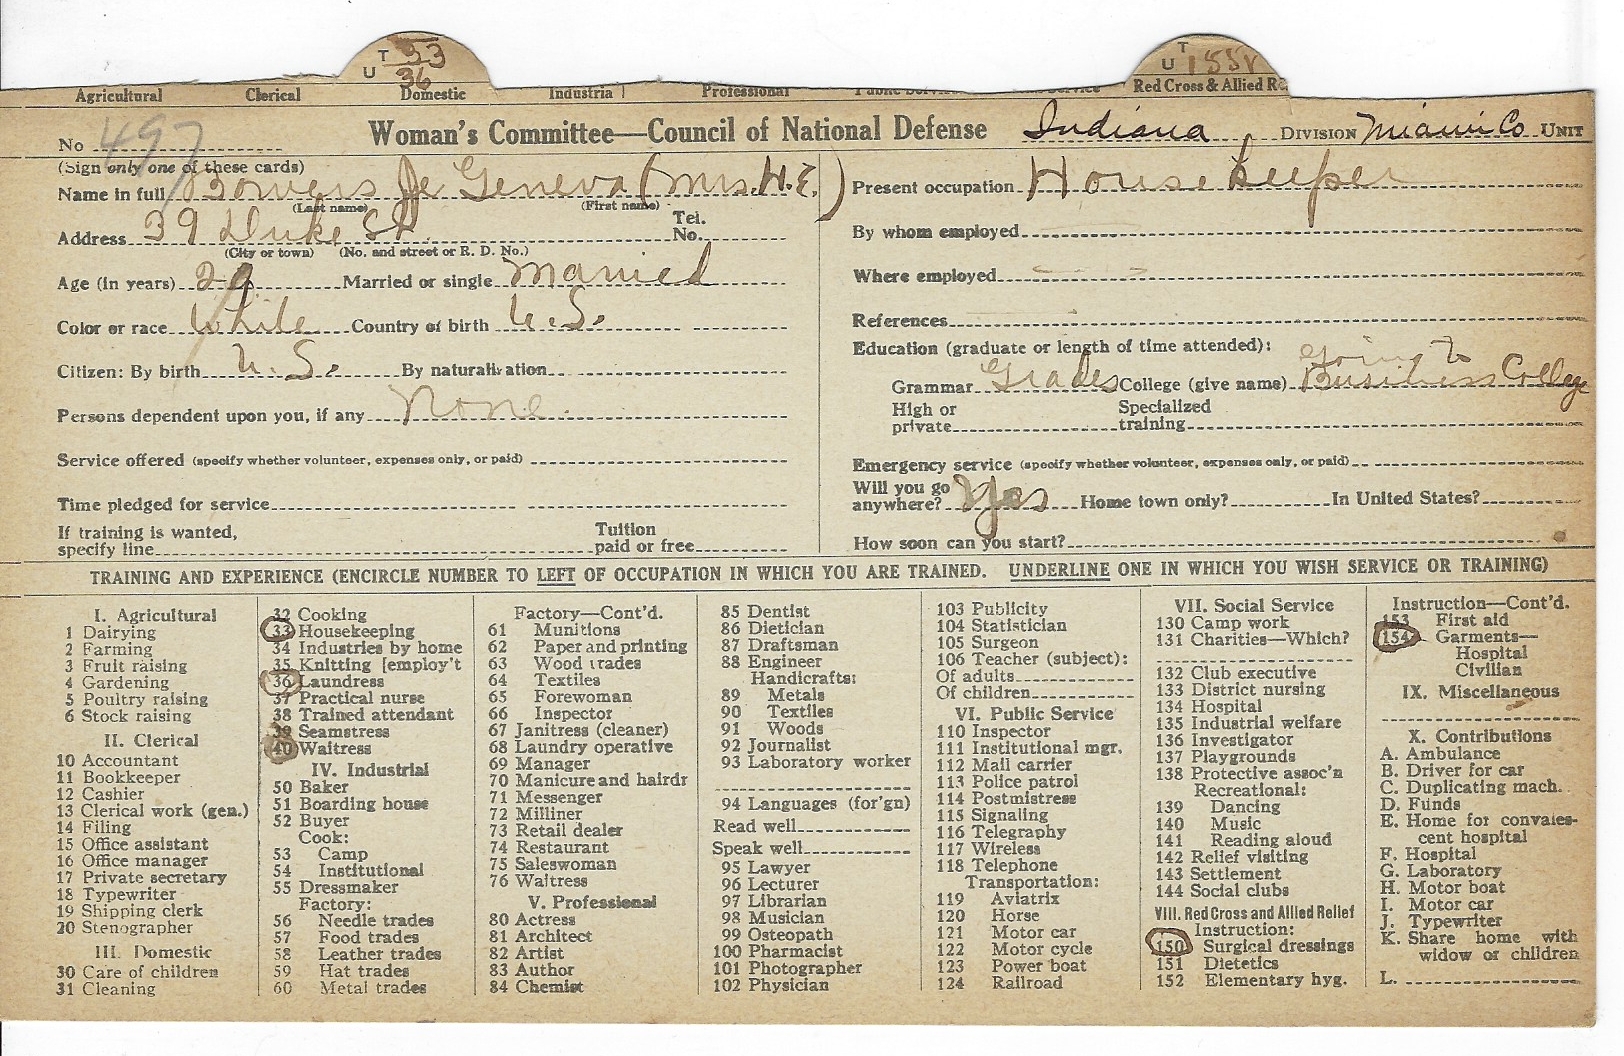 T 33
U 36
T
U 155
Agricultural Clerical Domestic Industrial Professional Public Service Red Cross & Allied Re
No 497 Woman's Committee—Council of National Defense Indiana DIVISION Miami Co UNIT
(Sign only one of these cards)
Name in full Bowers Geneva (Mrs. H.E.)
(Last name) (First name)
Address 39 Duke St Tel. No.
(City or town) (No. and street or R. D. No.)
Age (in years) 29 Married or single Married
Color or race White Country of birth U.S.
Citizen: By birth U.S. By naturalization
Persons dependent upon you, if any None
Service offered (specify whether volunteer, expenses only, or paid)
Time pledged for service
If training is wanted, specify line Tuition paid or free
Present occupation Housekeeper
By whom employed
Where employed
References
Education (graduate or length of time attended):
Grammar Grades College (give name) Going to Business College
High or private Specialized training
Emergency service (specify whether volunteer, expenses only, or paid)
Will you go anywhere? Yes Home town only? In United States?
How soon can you start?
TRAINING AND EXPERIENCE (ENCIRCLE NUMBER TO LEFT OF OCCUPATION IN WHICH YOU ARE TRAINED. UNDERLINE ONE IN WHICH YOU WISH SERVICE OR TRAINING)
I. Agricultural
1 Dairying
2 Farming
3 Fruit raising
4 Gardening
5 Poultry raising
6 Stock raising
II. Clerical
10 Accountant
11 Bookkeeper
12 Cashier
13 Clerical work (gen.)
14 Filing
15 Office assistant
16 Office manager
17 Private secretary
18 Typewriter
19 Shipping clerk
20 Stenographer
III. Domestic
30 Care of children
31 Cleaning
32 Cooking
33 Housekeeping
34 Industries by home
35 Knitting [employ't
36 Laundress
37 Practical nurse
38 Trained attendant
39 Seamstress
40 Waitress
IV. Industrial
50 Baker
51 Boarding house
52 Buyer
Cook:
53 Camp
54 Institutional
55 Dressmaker
Factory:
56 Needle trades
57 Food trades
58 Leather trades
59 Hat trades
60 Metal trades
Factory—Cont'd.
61 Munitions
62 Paper and printing
63 Wood trades
64 Textiles
65 Forewoman
66 Inspector
67 Janitress (cleaner)
68 Laundry operative
69 Manager
70 Manicure and hairdr
71 Messenger
72 Milliner
73 Retail dealer
74 Restaurant
75 Saleswoman
76 Waitress
V. Professional
80 Actress
81 Architect
82 Artist
83 Author
84 Chemist
85 Dentist
86 Dietician
87 Draftsman
88 Engineer
Handicrafts:
89 Metals
90 Textiles
91 Woods
92 Journalist
93 Laboratory worker
94 Languages (for'gn)
Read well
Speak well
95 Lawyer
96 Lecturer
97 Librarian
98 Musician
99 Osteopath
100 Pharmacist
101 Photographer
102 Physician
103 Publicity
104 Statistician
105 Surgeon
106 Teacher (subject):
Of adults
Of children
VI. Public Service
110 Inspector
111 Institutional mgr.
112 Mail carrier
113 Police patrol
114 Postmistress
115 Signaling
116 Telegraphy
117 Wireless
118 Telephone
Transportation:
119 Aviatrix
120 Horse
121 Motor car
122 Motor cycle
123 Power boat
124 Railroad
VII. Social Service
130 Camp work
131 Charities—Which?
132 Club executive
133 District nursing
134 Hospital
135 Industrial welfare
136 Investigator
137 Playgrounds
138 Protective assoc'n
Recreational:
139 Dancing
140 Music
141 Reading aloud
142 Relief visiting
143 Settlement
144 Social clubs
VIII. Red Cross and Allied Relief
Instruction:
150 Surgical dressings
151 Dietetics
152 Elementary hyg.
Instruction—Cont'd.
153 First aid
154 Garments—
Hospital
Civilian
IX. Miscellaneous
X. Contributions
A. Ambulance
B. Driver for car
C. Duplicating mach.
D. Funds
E. Home for convales-
cent hospital
F. Hospital
G. Laboratory
H. Motor boat
I. Motor car
J. Typewriter
K. Share home with
widow or children
L.